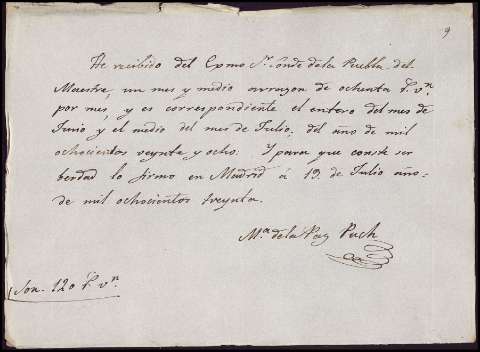 9
He recibido del Exmo Sr. Conde dela Puebla del
Maestre, un mes y medio arrazon de ochenta rs. vn.
por mes, y es correspondiente el entero del mes de
Junio y el medio del mes de Julio; del año de mil
ochocientos veynte y ocho: Y para que conste ser
berdad lo firmo en Madrid á 19. de Julio año=
de mil ochocientos treynta.
Ma. dela Paz Puch
Son. 120 rs. vn.